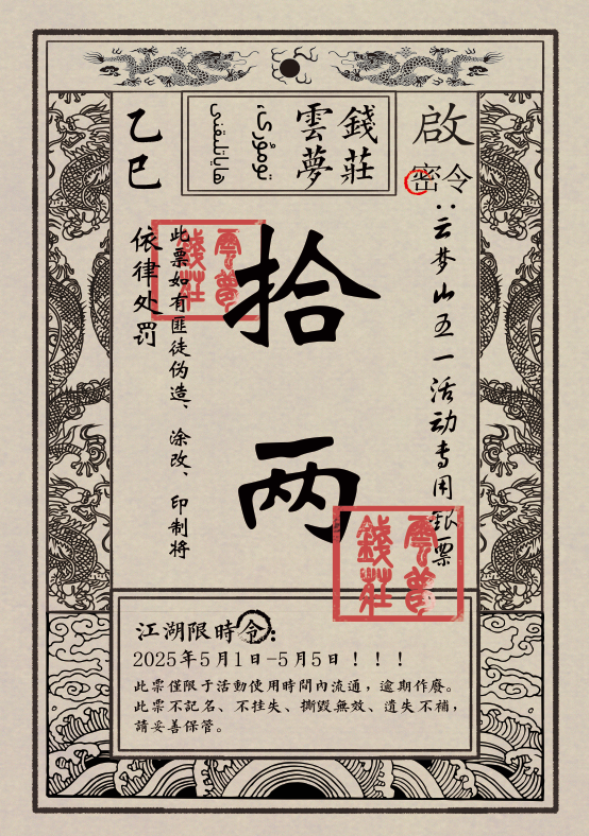 啟
密令：
云梦山五一活动专用銀票
錢莊
雲夢
乙巳
拾两
此票如有匪徒伪造、涂改、印制将
依律处罚
雲夢
錢莊
雲夢
錢莊
江湖限時令：
2025年5月1日-5月5日！！！
此票僅限于活動使用時間內流通，逾期作廢。
此票不記名、不挂失、撕毀無效、遺失不補，
請妥善保管。